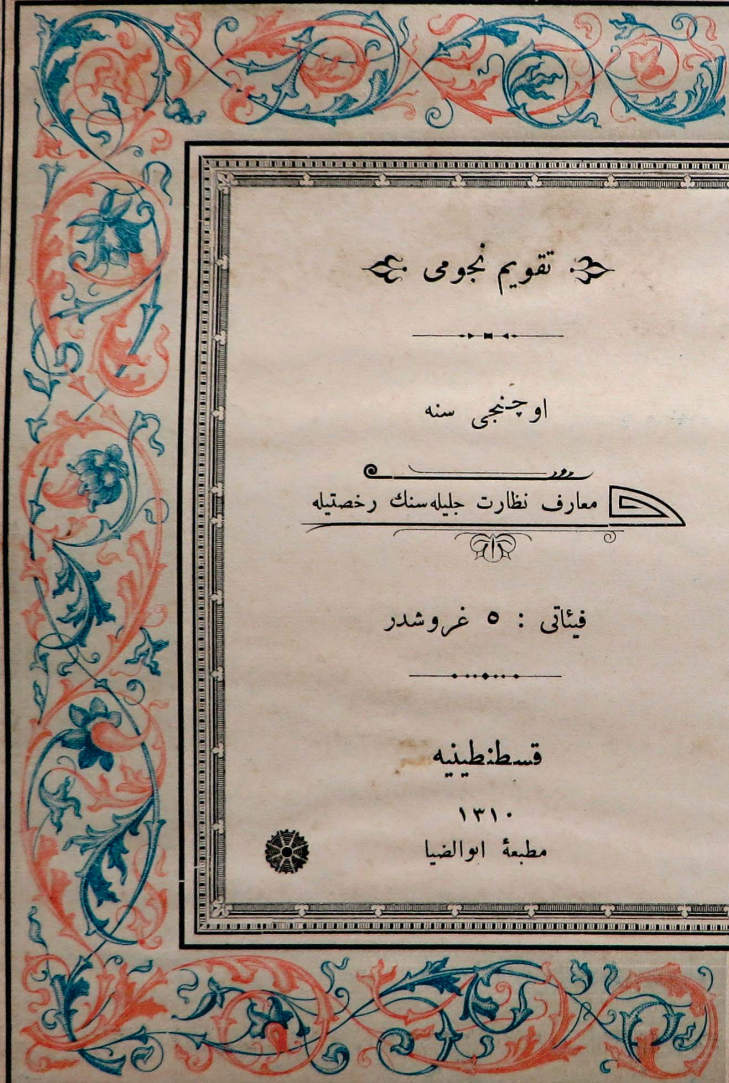 تقویم نجومی
اوچنجی سنه
معارف نظارت جلیله‌سنك رخصتیله
فیئاتی : ٥ غروشدر
قسطنطینیه
١٣١٠
مطبعهٔ ابوالضیا